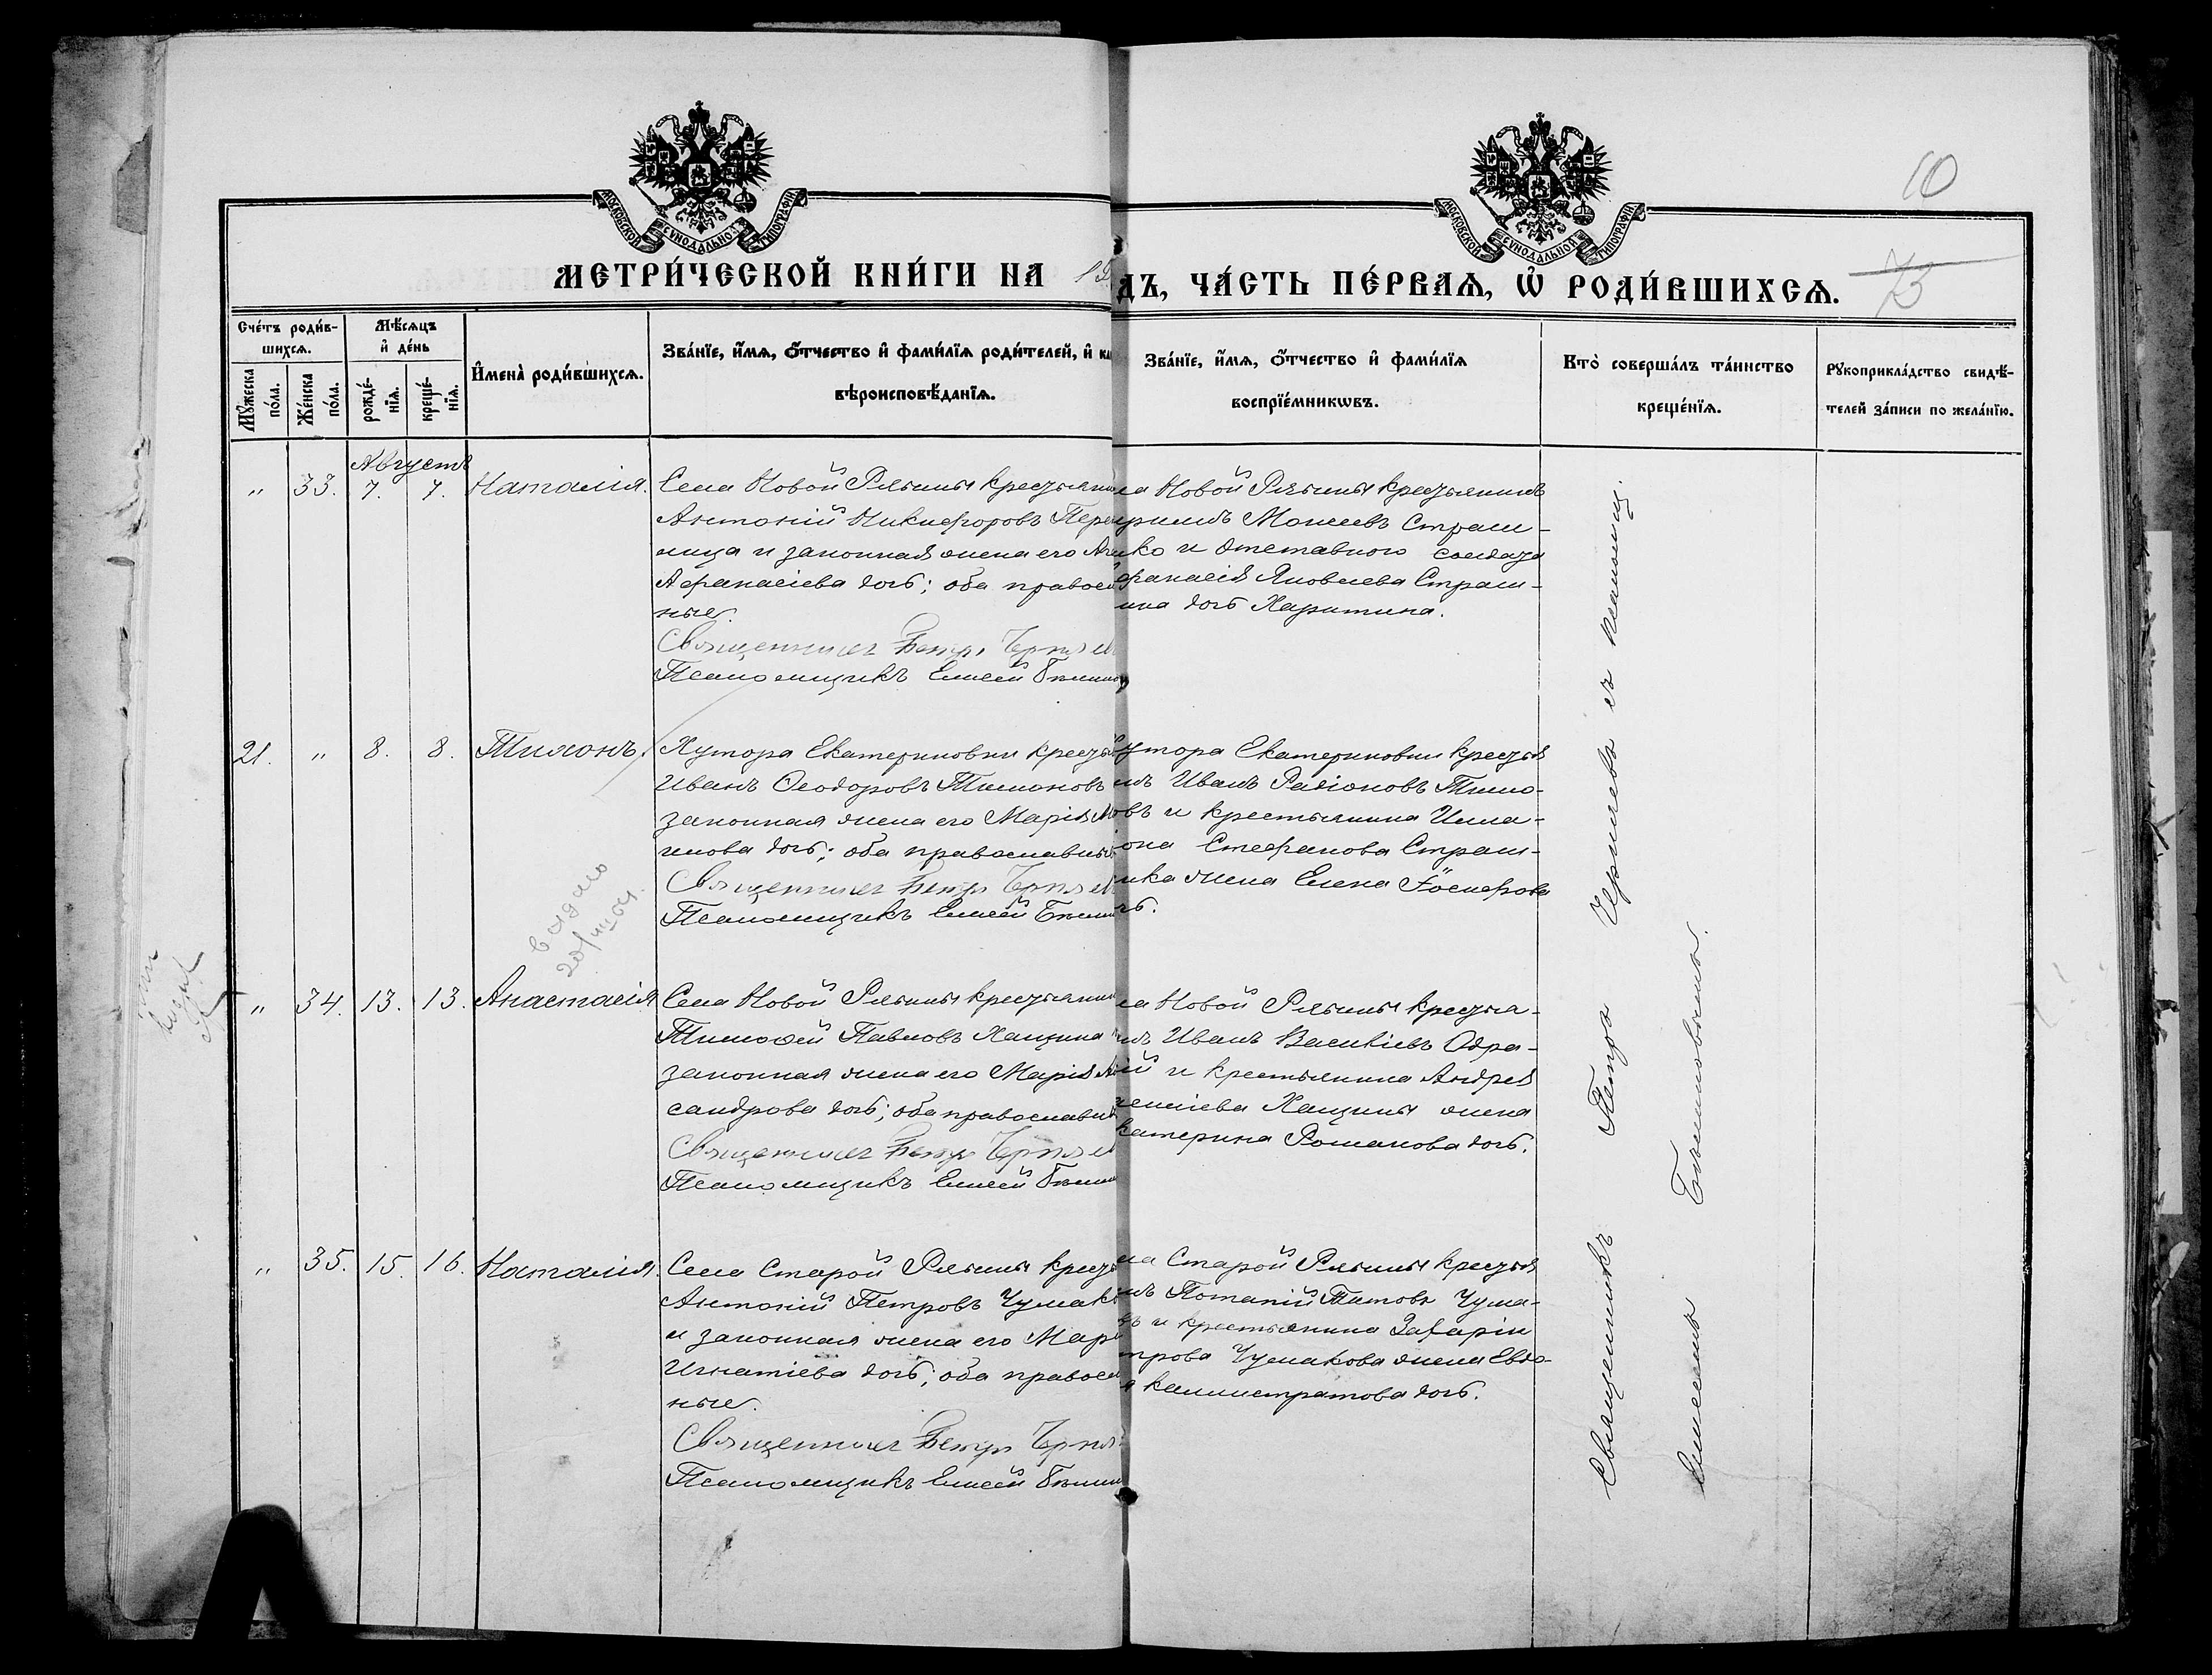 МОСКОВСКОЙ СѴНОДАЛЬНОЙ ТИПОГРАФІИ
МОСКОВСКОЙ СѴНОДАЛЬНОЙ ТИПОГРАФІИ
10
МЕТРИ́ЧЕСКОЙ КНИ́ГИ НА
ДЪ, ЧА́СТЬ ПЕ́РВАѦ, Ѡ҆ РОДИ́ВШИХСѦ.
Сче́тъ роди́в-
шихсѧ.
Мѣ́сѧцъ
и҆ де́нь
Мꙋ́жеска
по́ла.
Же́нска
по́ла.
рожде́-
нїѧ.
креще́-
нїѧ.
И҆мена̀ роди́вшихсѧ.
Зва́нїе, и҆́мѧ, ѻ҆́тчество и҆ фами́лїѧ роди́телей, и҆ ка
вѣроисповѣ́данїѧ.
Зва́нїе, и҆́мѧ, ѻ҆́тчество и҆ фами́лїѧ
воспрїе́мникѡвъ.
Кто̀ соверша́лъ та́инство
креще́нїѧ.
Рꙋкоприкла́дство свидѣ́-
телей за́писи по жела́нїю.
Августъ
" 33. 7. 7. Наталія.
Села Новой Рябины крестьянин
Антоній Никифоровъ Пере
ница и законная жена его
Афанасіева дочь; оба правосл
ные.
Священникъ Петръ Черняев
Псаломщикъ Елисей
ла Новой Рябины крестьянинъ
Моисеевъ Страш-
ко и отставного солдата
фанасія Яковлева Страш-
ка дочь Харитина.
21. " 8. 8. Тихонъ.
Хутора Екатериновки крестья
Иванъ Ѳеодоровъ Тимоновъ
законная жена его Марія
дочь; оба православны
Священникъ Петръ Черняев
Псаломщикъ Елисей
утора Екатериновки крестья
нъ Иванъ Радіоновъ Тимо-
овъ и крестьянина Илла-
іона Стефанова Страш-
ка жена Елена
чь.
выдано
" 34. 13. 13. Анастасія
Села Новой Рябины крестьянин
Тимоѳей Павловъ Хащина
законная жена его Марія
сандрова дочь; оба православн
Священникъ Петръ Черняев
Псаломщикъ Елисей
ла Новой Рябины крестья-
нъ Иванъ Василіевъ Одра-
ій и крестьянина Андрея
Хащины жена
катерина Романова дочь.
" 35. 15. 16. Наталія.
Села Старой Рябины кресть
Антоній Петровъ Чумак
и законная жена его Марі
Игнатіева дочь; оба правосл
ные.
Священникъ Петръ Черня
Псаломщикъ Елисей
ла Старой Рябины крестья
нъ Потапій Титовъ Чума-
въ и крестьянина Захаріи
трова Чумакова жена Евдо-
я Каллистратова дочь.
Священникъ Петръ Черняевъ съ псаломщ.
Елисеемъ